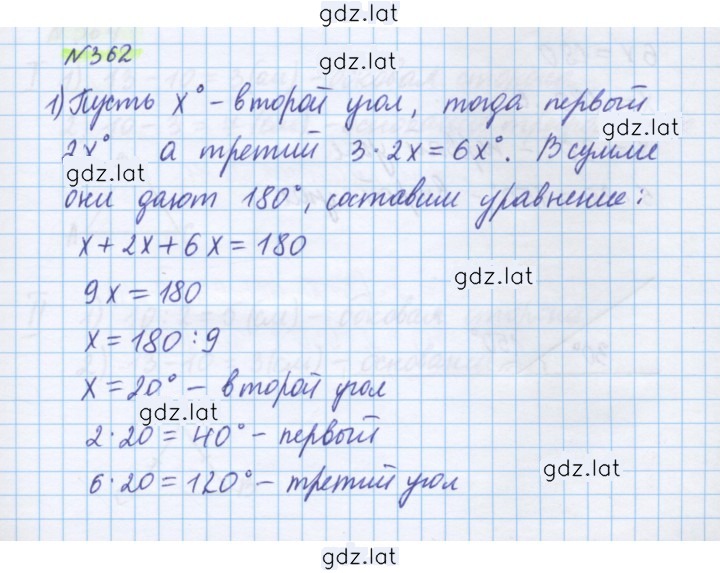 gdz.lat
№362
gdz.lat
1) Пусть x° - второй угол, тогда первый
gdz.lat
2x° а третий 3·2x=6x°. В сумме
gdz.lat
они дают 180°, составим уравнение:
x+2x+6x=180
gdz.lat
9x=180
x=180:9
x=20° - второй угол
gdz.lat
2·20=40° - первый
gdz.lat
6·20=120° - третий угол
gdz.lat